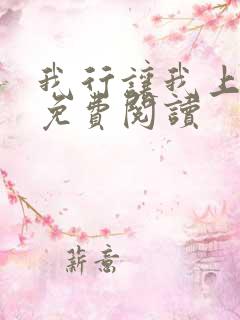 我行讓我上
免費閱讀
薪意